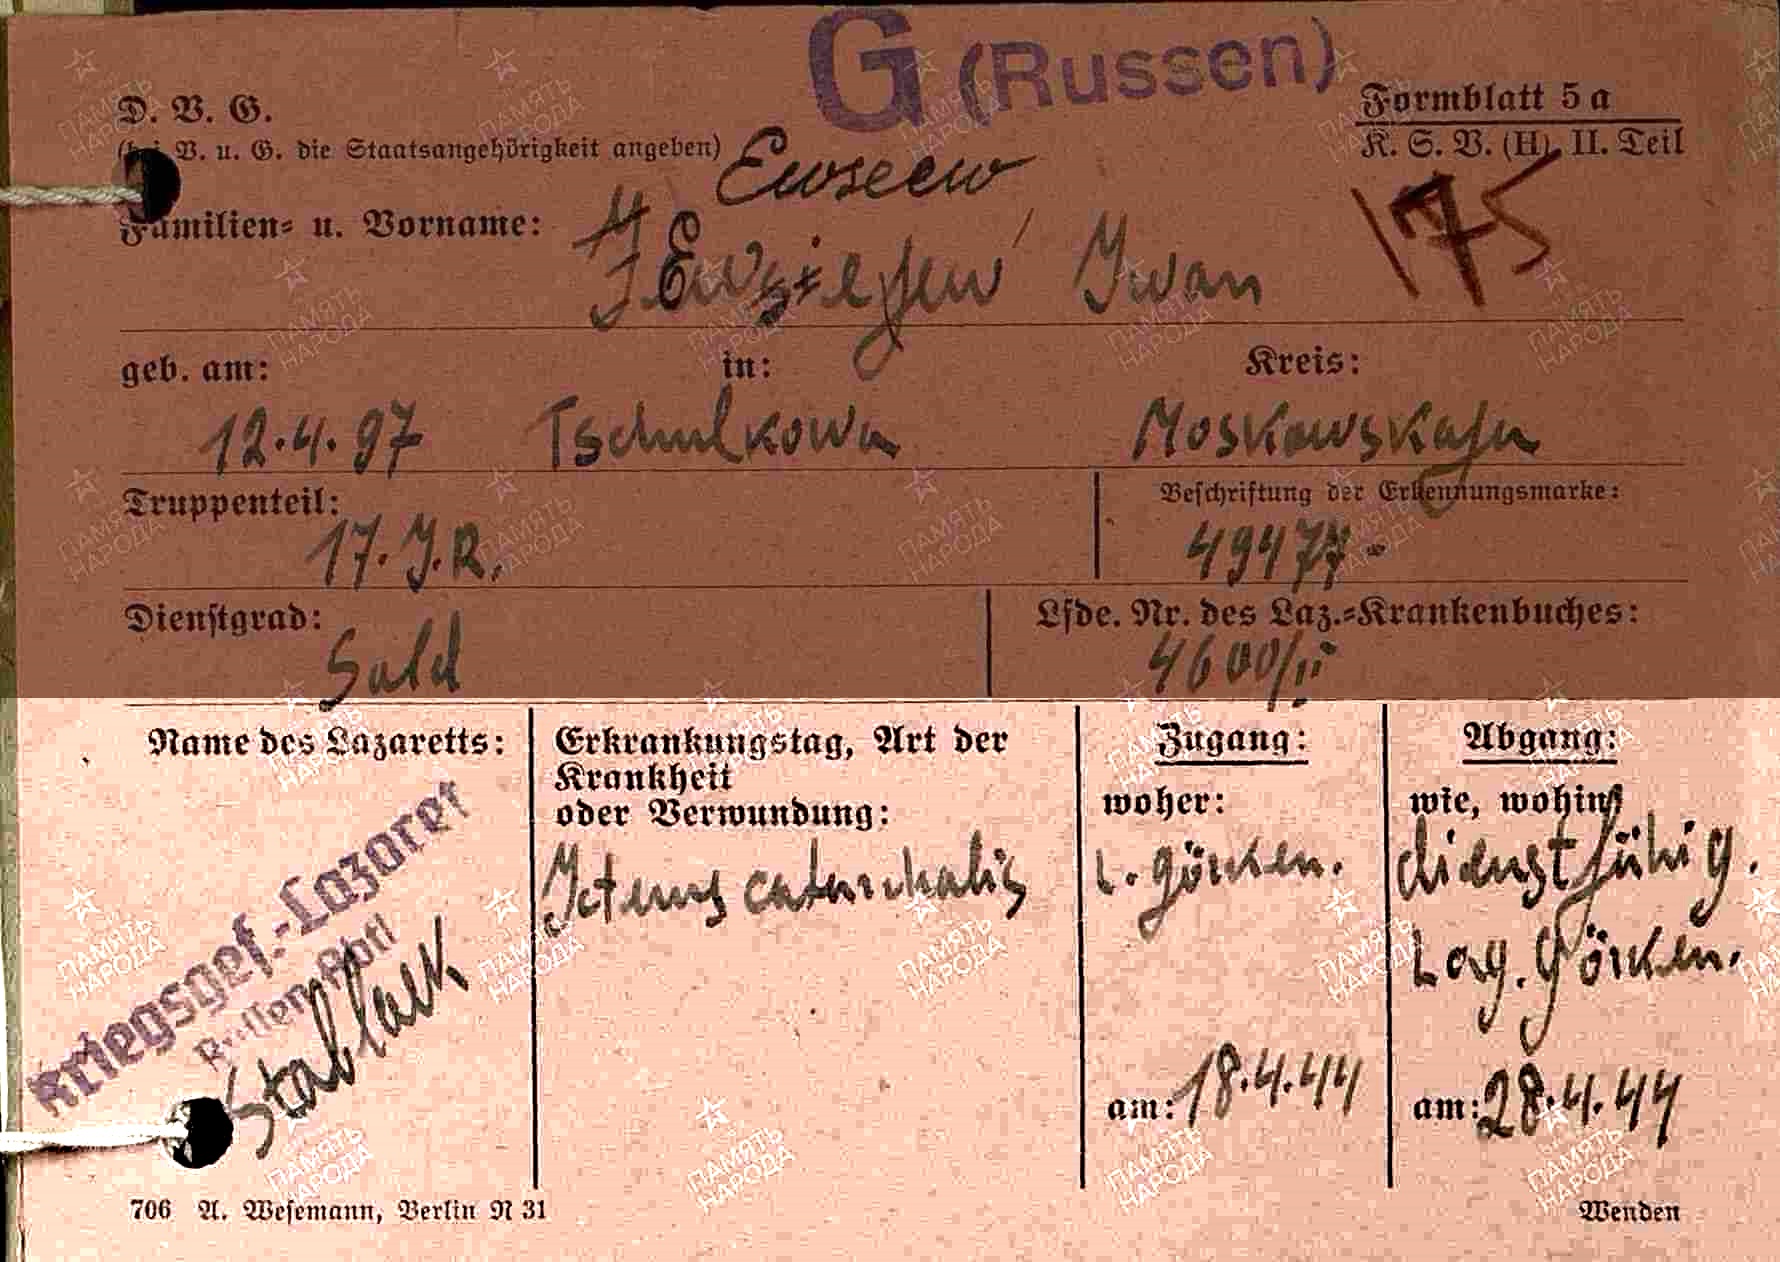 G (Russen)
D. V. G.
Formblatt 5a
(bei V. u. G. die Staatsangehörigkeit angeben)
K. S. V. (H). II. Teil
Ewseew
175
Familien- u. Vorname:
Iwan
geb. am: in: Kreis:
12.4.97 Tschulkowa Moskowskaja
Truppenteil: Beschriftung der Erkennungsmarke:
17. J.R. 49477-
Dienstgrad: Lfde. Nr. des Laz.-Krankenbuches:
Sold 4600/II
Name des Lazaretts: Erkrankungstag, Art der Krankheit oder Verwundung: Zugang: Abgang:
woher: wie, wohin:
Kriegsgef.-Lazaret
Russen Abtl
Stablack
Icterus catarrhalis
L. Görken.
dienstfähig.
Lag. Görken.
am: 18.4.44 am: 28.4.44
706 A. Wesemann, Berlin N 31
Wenden
ПАМЯТЬ НАРОДА